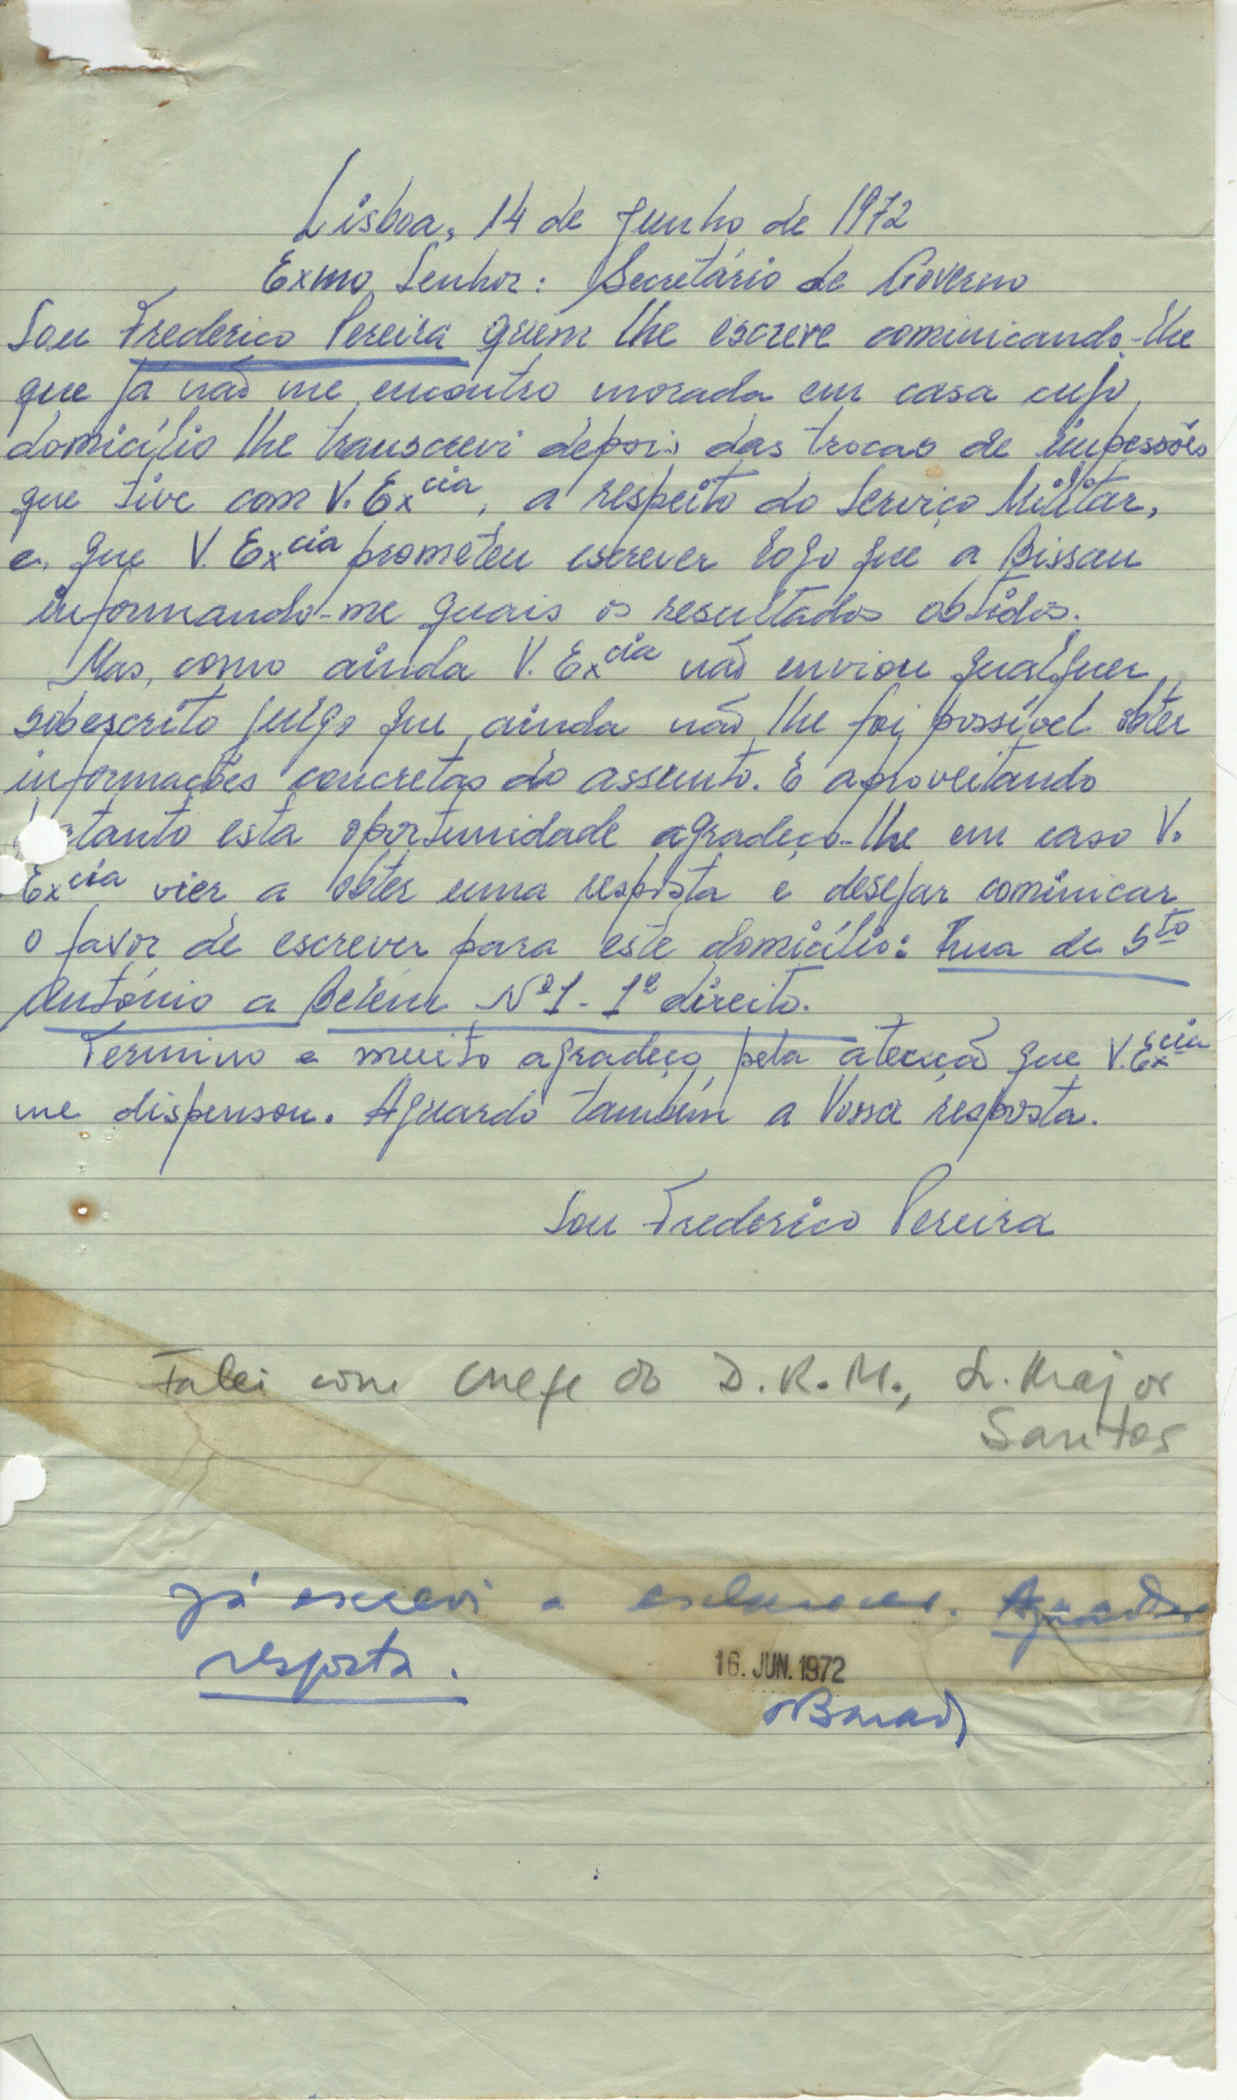 Lisboa, 14 de Junho de 1972
Exmo Senhor: Secretário de Governo
Sou Frederico Pereira quem lhe escreve cominicando-lhe
que já não me encontro morada em casa cujo
domicílio lhe transcrevi depois das trocas de impessões
que tive com V. Excia, a respeito do Serviço Militar,
e, que V. Excia prometeu escrever logo que a Bissau
informando-me quais os resultados obtidos.
Mas, como ainda V. Excia não enviou qualquer
sobescrito julgo que ainda não lhe foi possível obter
informações concretas do assunto. E aproveitando
tanto esta oportunidade agradeço-lhe em caso V.
Excia vier a obter uma resposta e desejar cominicar
o favor de escrever para este domicílio: Rua de Sto
António a Belém Nº1 - 1º direito.
Termino e muito agradeço pela atenção que V. Excia
me dispensou. Aguardo também a Vossa resposta.
Sou Frederico Pereira
Falei com chefe do D.R.M., Sr. Major
Santos
Já escrevi a esclarecer. Aguardar
resposta.
16. JUN. 1972